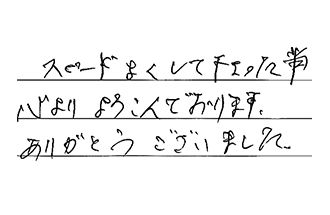 スピードよくして下さった事
心より よろこんでおります。
ありがとう ございました。